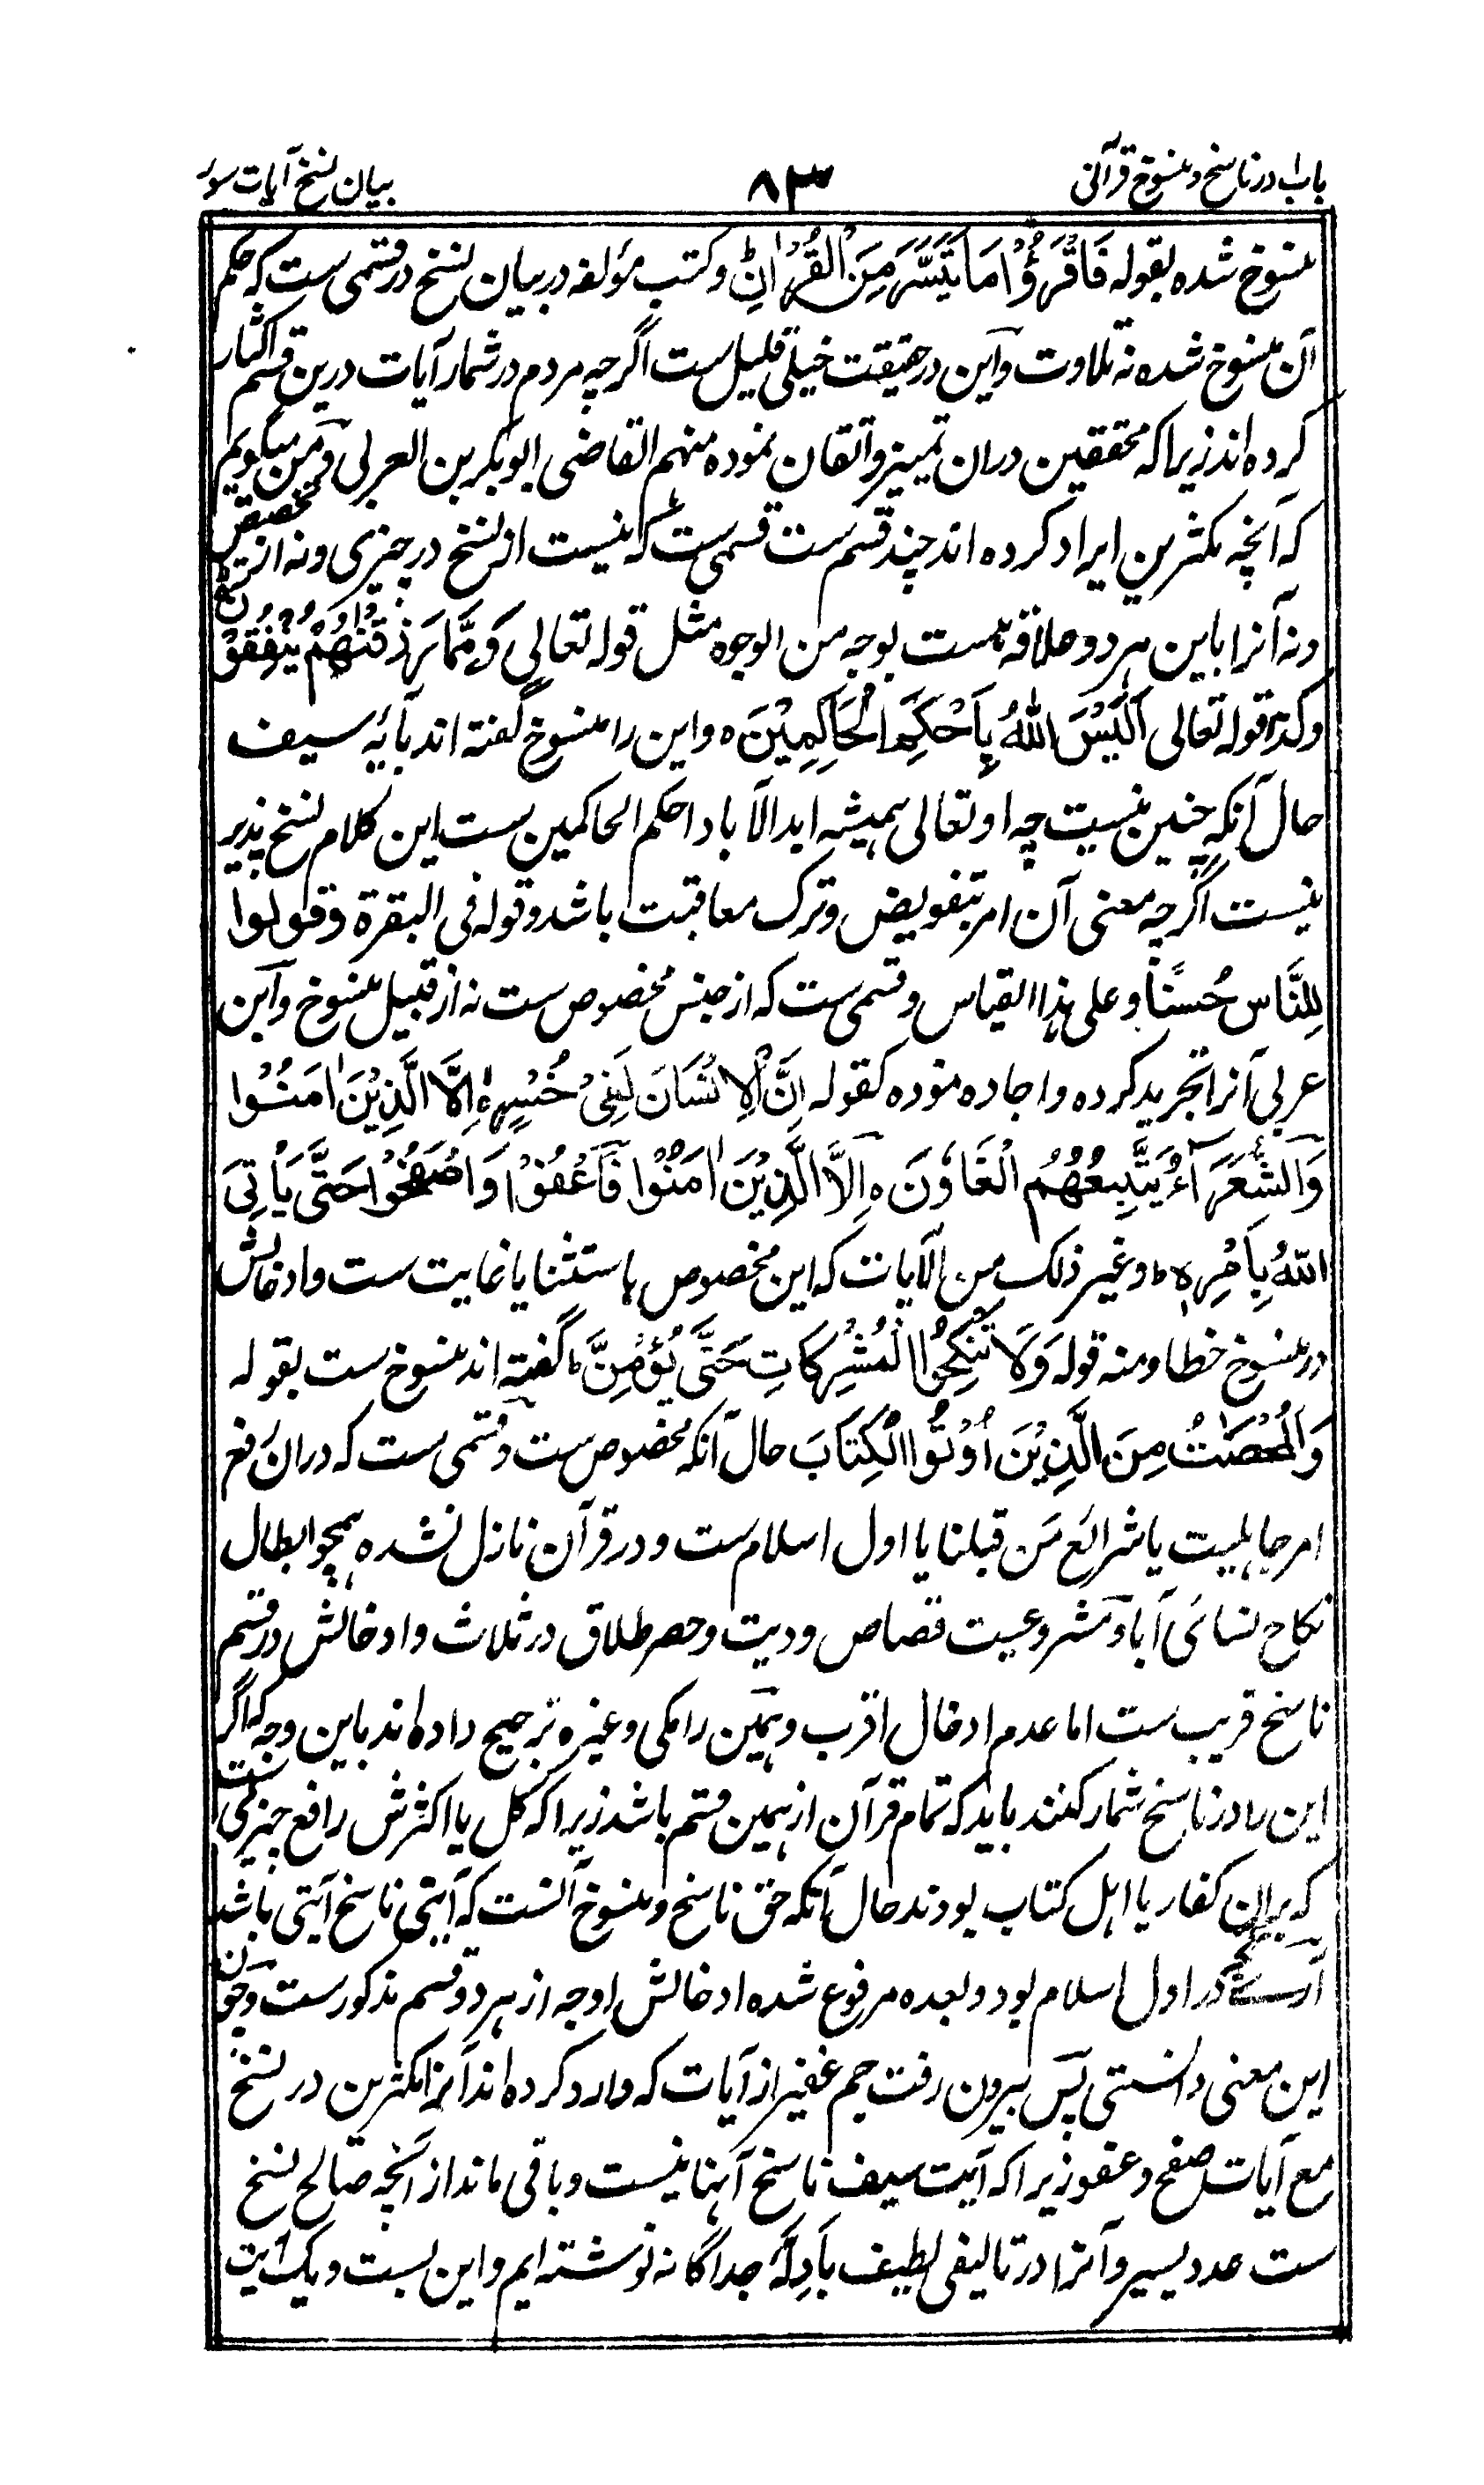 باب ۱ در ناسخ و منسوخ قرآنی
۸۳
بیان نسخ آیات سور
منسوخ شده بقوله فَاقْرَءُوْا مَا تَیَسَّرَ مِنَ الْقُرْاٰنِ وکتب مؤلفه در بیان نسخ در قسمی ست که حکم
آن منسوخ شده نه تلاوت وآین در حقیقت خیلی قلیل ست اگرچه مردم در شمار آیات درین قسم اکثار
کرده اند زیرا که محققین دران تمییز و اتقان نموده منهم القاضی ابوبکر بن العربی وٓمن میگویم
که آنچه مکثرین ایراد کرده اند چند قسم ست قسمی ست که نیست از نسخ در چیزی ونه از تخصیص
ونه آنرا باین هر دو علاقه هست بوجه من الوجوه مثل قوله تعالی وَمِمَّا رَزَقْنٰهُمْ یُنْفِقُوْنَ
وکذا قوله تعالی اَلَیْسَ اللّٰهُ بِاَحْکَمِ الْحَاکِمِیْنَ ه واین را منسوخ گفته اند بآیه سیف
حال آنکه چنین نیست چه او تعالی همیشه ابد الآباد احکم الحاکمین ست این کلام نسخ پذیر
نیست اگرچه معنی آن امر بتفویض وترک معاقبت باشد وقوله فی البقرة وقولوا
لِلنَّاسِ حُسْنًا وعلی هذا القیاس وقسمی ست که از جنس مخصوص ست نه از قبیل منسوخ وآبن
عربی آنرا تجرید کرده واجاده نموده کقوله اِنَّ الْاِنْسَانَ لَفِیْ خُسْرٍ ه اِلَّا الَّذِیْنَ اٰمَنُوْا
وَالشُّعَرَآءُ یَتَّبِعُهُمُ الْغَاوٗنَ ه اِلَّا الَّذِیْنَ اٰمَنُوْا فَاعْفُوْا وَاصْفَحُوْا حَتّٰی یَاْتِیَ
اللّٰهُ بِاَمْرِهٖ ط وغیر ذلک من الآیات که این مخصوص باستثنا یا غایت ست وادخالش
در منسوخ خطا ومنه قوله وَلَا تَنْکِحُوا الْمُشْرِکَاتِ حَتّٰی یُؤْمِنَّ ط گفته اند منسوخ ست بقوله
وَالْمُحْصَنٰتُ مِنَ الَّذِیْنَ اُوْتُوا الْکِتَابَ حال آنکه مخصوص ست وقسمی ست که دران رفع
امر جاهلیت یا شرائع مَن قبلنا یا اول اسلام ست ودر قرآن نازل نشده همچو ابطال
نکاح نسائی آبا ومشروعیت قصاص ودیت وحصر طلاق در ثلاث وادخالش در قسم
ناسخ قریب ست اما عدم ادخال اقرب وهمین را مکی وغیره ترجیح داده اند باین وجه که اگر
این را در ناسخ شمار کنند باید که تمام قرآن از همین قسم باشد زیرا که کل یا اکثرش رافع چیزی ست
که بران کفار یا اهل کتاب بودند حال آنکه حق ناسخ ومنسوخ آنست که آیتی ناسخ آیتی باشد
آرے در اول اسلام بود وبعده مرفوع شده ادخالش اوجه از هر دو قسم مذکور ست وچون
این معنی دانستی پس بیرون رفت جم غفیر از آیات که وارد کرده اند آنرا مکثرین در نسخ
مع آیات صفح وعفو زیرا که آیت سیف ناسخ آنها نیست وباقی ماند از آنچه صالح نسخ
ست عدد یسیر وآنرا در تالیفی لطیف باَدِلَّه جداگانه نوشته ایم واین بست ویک آیت